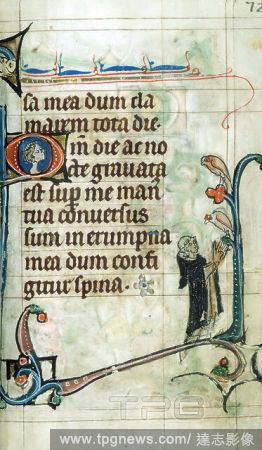 72
sa mea dum cla
marem tota die·
Qm̄ die ac no
cte gravata
est sup̄ me man
tua conversus
sum in erumpna
mea dum confi
gitur spina·
TPG
www.tpgnews.com / 達志影像